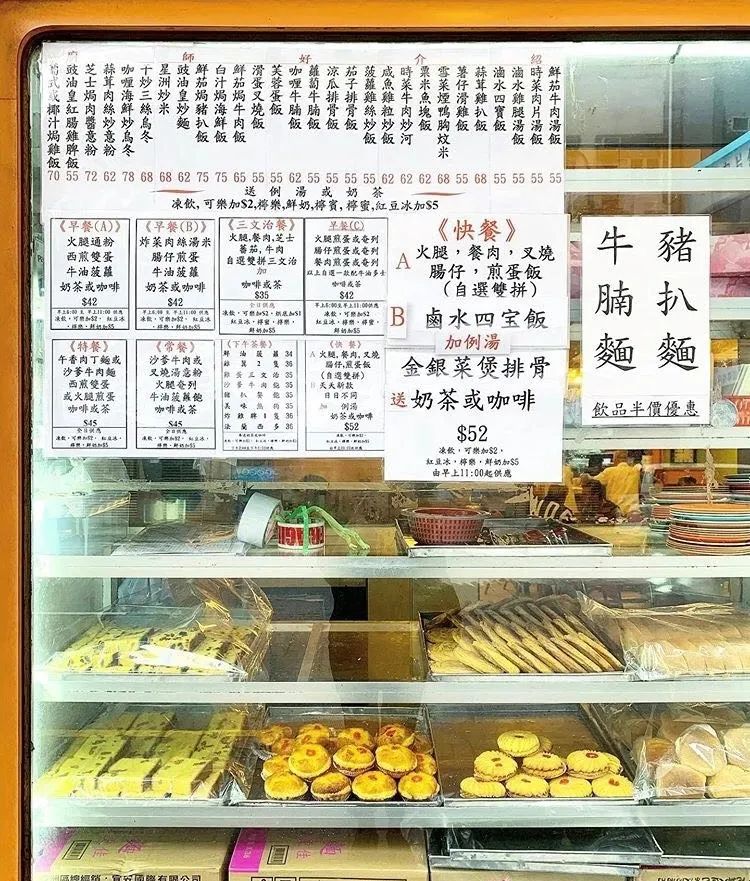 師好介紹
鮮茄牛肉湯飯 55
時菜肉片湯飯 55
滷水雞腿湯飯 55
滷水四寶飯 55
蒜茸雞扒飯 55
薯仔滑雞飯 68
雪菜煙鴨胸炆米 55
粟米魚塊飯 62
時菜牛肉炒河 62
咸魚雞粒炒飯 62
菠蘿雞絲炒飯 62
茄子排骨飯 55
涼瓜排骨飯 55
蘿蔔牛腩飯 55
咖喱牛腩飯 55
芙蓉蛋飯 55
滑蛋叉燒飯 55
鮮茄焗牛肉飯 65
白汁焗海鮮飯 68
鮮茄焗豬扒飯 75
豉油皇炒麵 62
星洲炒米 68
干炒三絲烏冬 68
咖喱海鮮炒烏冬 78
蒜茸肉絲炒意粉 62
芝士焗肉醬意粉 72
豉油皇紅腸雞脾飯 55
葡式或椰汁焗雞飯 70
送例湯或奶茶
凍飲,可樂加$2,檸樂,鮮奶,檸賓,檸蜜,紅豆冰加$5
《早餐(A)》
火腿通粉
西煎雙蛋
牛油菠蘿
奶茶或咖啡
$42
早上6:00 至 早上11:00供應
《早餐(B)》
炸菜肉絲湯米
腸仔煎蛋
牛油菠蘿
奶茶或咖啡
$42
早上6:00 至 早上11:00供應
《三文治餐》
火腿,餐肉,芝士
蕃茄,牛肉
自選雙拼三文治
加
咖啡或茶
$35
全日供應
早餐(C)
火腿煎蛋或奄列
腸仔煎蛋或奄列
餐肉煎蛋或奄列
以上自選一款配牛油多士
咖啡或茶
$42
早上6:00 至 早上11:00供應
《快餐》
A 火腿，餐肉，叉燒
腸仔，煎蛋飯
（自選雙拼）
B 鹵水四宝飯
加例湯
金銀菜煲排骨
送 奶茶或咖啡
$52
凍飲，可樂加$2，
紅豆冰，檸樂，鮮奶加$5
由早上11:00起供應
豬扒麵
牛腩麵
飲品半價優惠
《特餐》
午香肉丁麵或
沙爹牛肉麵
西煎雙蛋
或火腿煎蛋
咖啡或茶
$45
全日供應
凍飲，可樂加$2，紅豆冰，
檸樂，鮮奶加$5
《常餐》
沙爹牛肉或
叉燒湯意粉
火腿奄列
牛油菠蘿飽
咖啡或茶
$45
全日供應
凍飲，可樂加$2，紅豆冰，
檸樂，鮮奶加$5
《下午茶餐》
鮮油菠蘿 34
雞翼2隻 36
雞蛋三文治 35
沙爹牛肉飽 35
炸蛋牛肉飽 35
美味熱狗 35
炸雞脾1隻 36
法蘭西多 36
《快餐》
A 火腿,餐肉,叉燒
腸仔,煎蛋飯
(自選雙拼)
B 天天新款
日日不同
加 例湯
奶茶或咖啡
$52